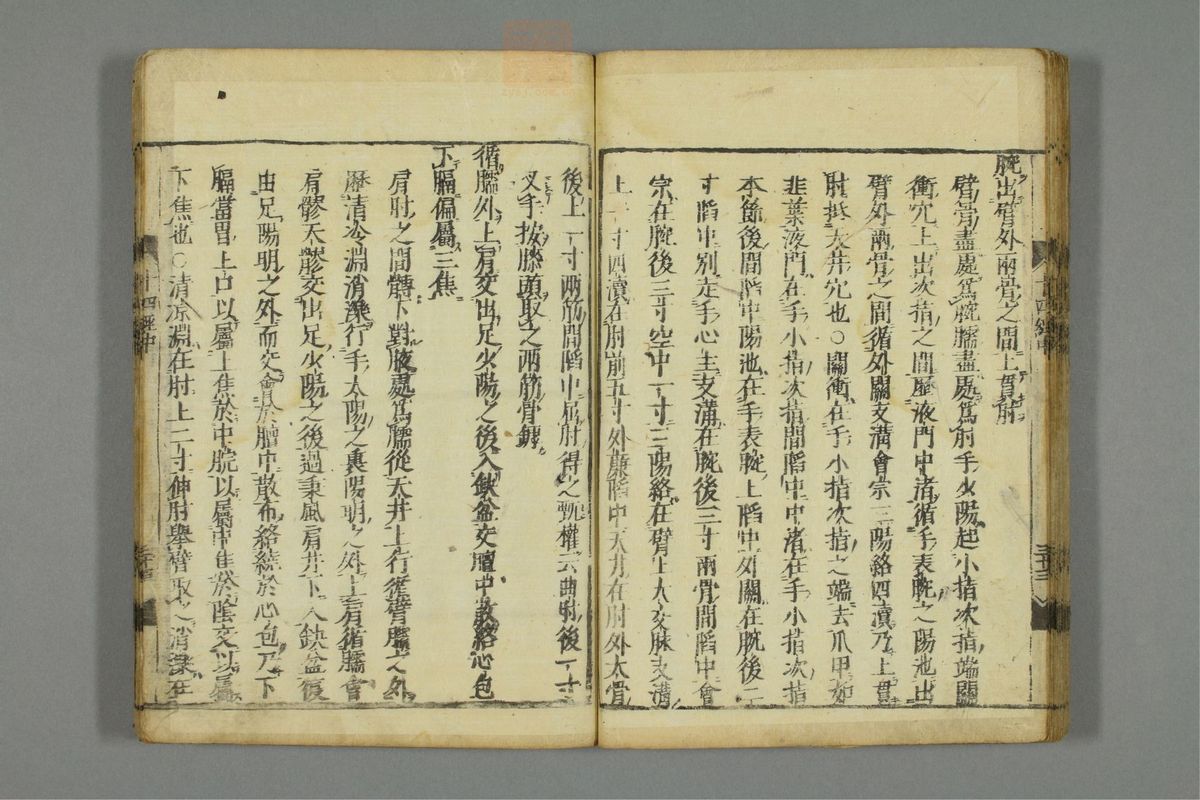 腕出臂外兩骨之間上貫肘
臂骨盡處爲腕臑盡處爲肘手少陽起小指次指端關
衝穴上出次指之間歷液門中渚循手表腕之陽池出
臂外兩骨之間循外關支溝會宗三陽絡四瀆乃上貫
肘抵天井穴也○關衝在手小指次指之端去爪甲如
韭葉液門在手小指次指間陷中中渚在手小指次指
本節後間陷中陽池在手表腕上陷中外關在腕後二
寸陷中別走手心主支溝在腕後三寸兩骨間陷中會
宗在腕後三寸空中一寸三陽絡在臂上大交脉支溝
上一寸四瀆在肘前五寸外廉陷中天井在肘外大骨
後上一寸兩筋間陷中屈肘得之甄權云曲肘後一寸
叉手按膝頭取之兩筋骨罅
循臑外上肩交出足少陽之後入缺盆交膻中散絡心包
下膈偏屬三焦
肩肘之間髆下對腋處爲臑從天井上行循臂臑之外
歷清冷淵消濼行手太陽之裏陽明之外上肩循臑會
肩髎天髎交出足少陽之後過秉風肩井下入缺盆復
由足陽明之外而交會於膻中散布絡繞於心包乃下
膈當胃上口以屬上焦於中脘以屬中焦於陰交以屬
下焦也○清涼淵在肘上二寸伸肘舉臂取之消濼在
十四經中